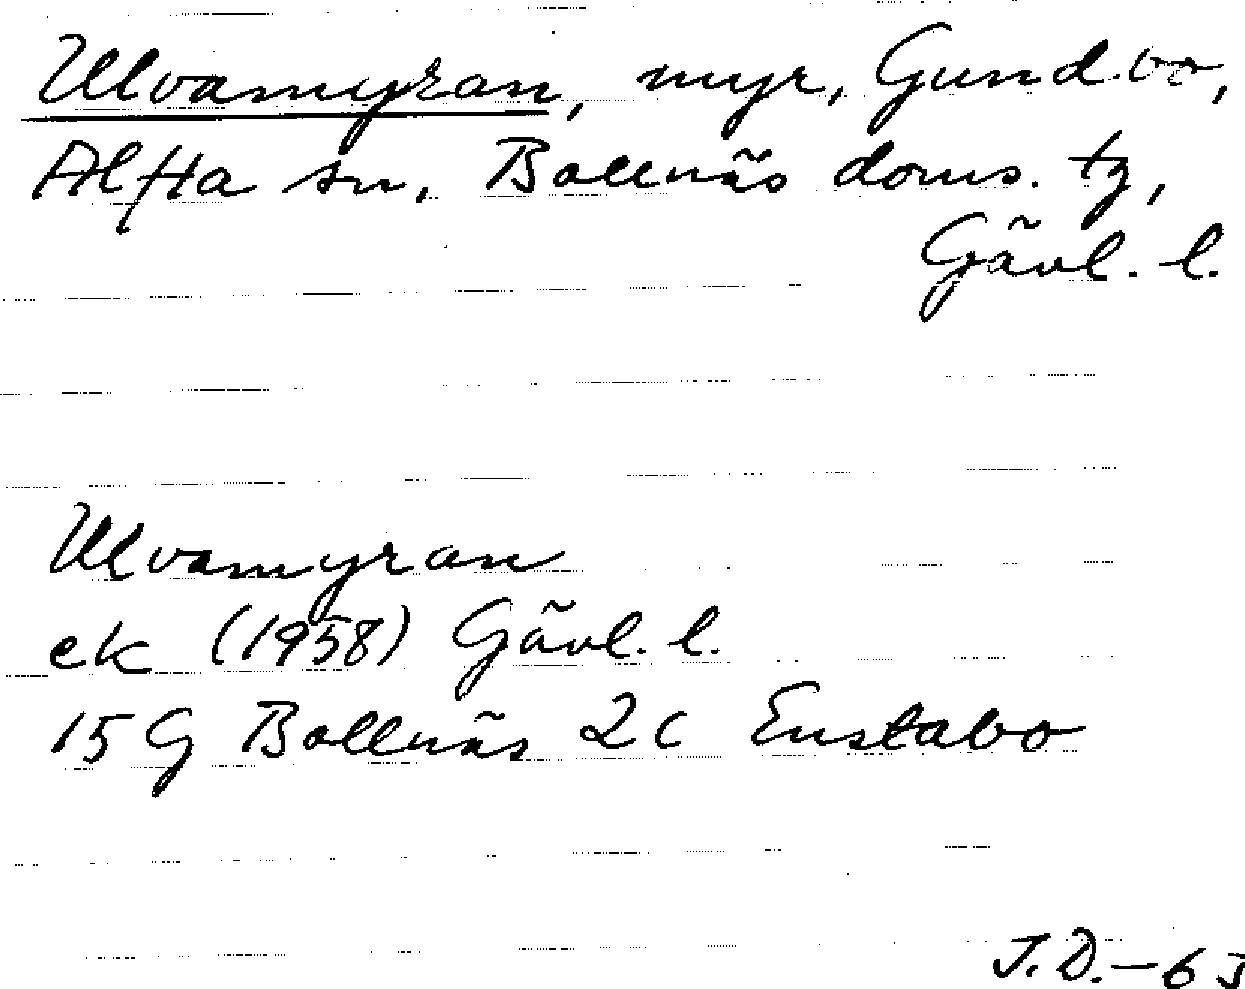 Ulvamyran, myr, Gundbo,
Alfta sn, Bollnäs doms. tg,
Gävl. l.
Ulvamyran
ek (1958) Gävl. l.
15G Bollnäs 2c Enstabo
J.D.–63